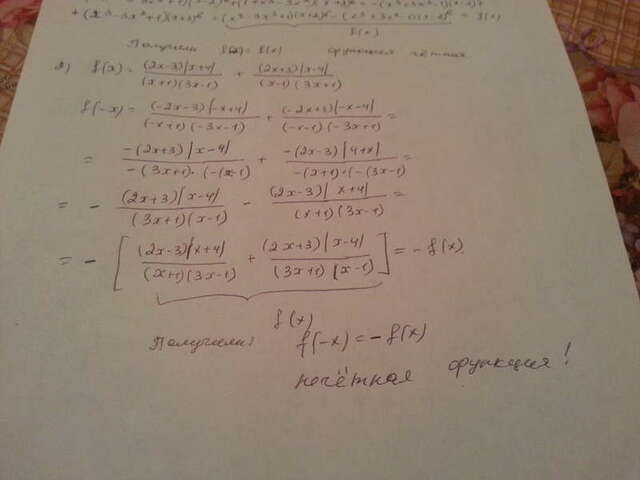 + (2x³-3x²+1)(x+2)⁶ = (x³-3x²+1)(x+2)⁶ - (x³+3x²-1)(x-2)⁶ = f(x)
f(x)
Получили f(-x) = f(x) функция чётная
2) f(x) = (2x-3)|x+4| / (x+1)(3x-1) + (2x+3)|x-4| / (x-1)(3x+1)
f(-x) = (-2x-3)|-x+4| / (-x+1)(-3x-1) + (-2x+3)|-x-4| / (-x-1)(-3x+1) =
= -(2x+3)|x-4| / -(3x+1)·(-(x-1) + -(2x-3)|4+x| / -(x+1)·(-(3x-1) =
= - (2x+3)|x-4| / (3x+1)(x-1) - (2x-3)|x+4| / (x+1)(3x-1) =
= - [ (2x-3)|x+4| / (x+1)(3x-1) + (2x+3)|x-4| / (3x+1)(x-1) ] = -f(x)
f(x)
Получили: f(-x) = -f(x)
нечётная функция!